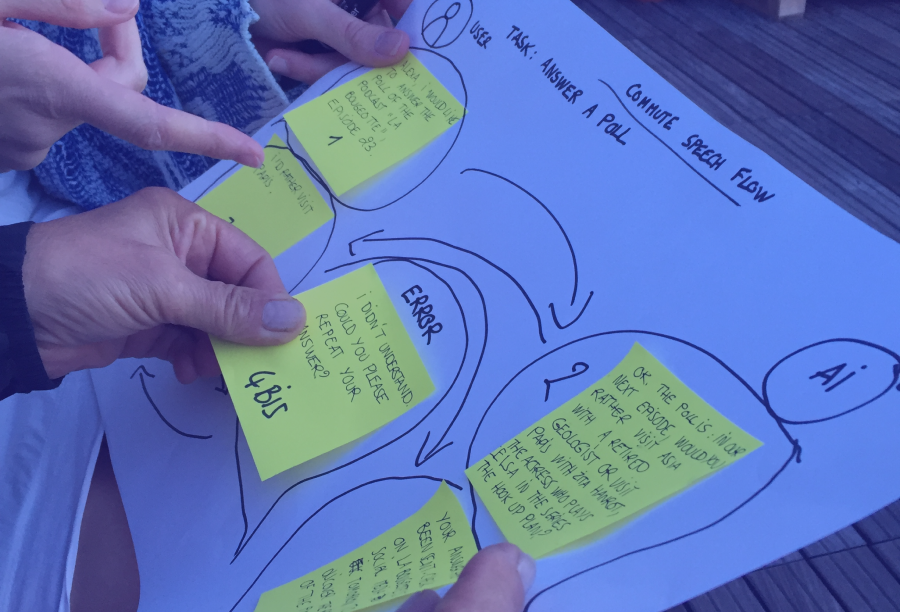 COMMUTE SPEECH FLOW
TASK: ANSWER A POLL
USER
I WOULD LIKE
TO ANSWER THE
POLL OF THE
PODCAST "LA
EPISODE 23.
1
I'D RATHER VISIT
PARIS.
ERROR
I DIDN'T UNDERSTAND
COULD YOU PLEASE
REPEAT YOUR
ANSWER?
4 BIS
AI
2
OK. THE POLL IS: IN OUR
NEXT EPISODE, WOULD YOU
RATHER VISIT ASIA
WITH A RETIRED
GEOLOGIST OR VISIT
PARIS WITH ZITA HANROT,
THE ACTRESS WHO PLAYS
ELSA IN THE SERIES
THE HOOK UP PLAN?
YOUR
BEEN
ON LA
SOCIAL
OF THE